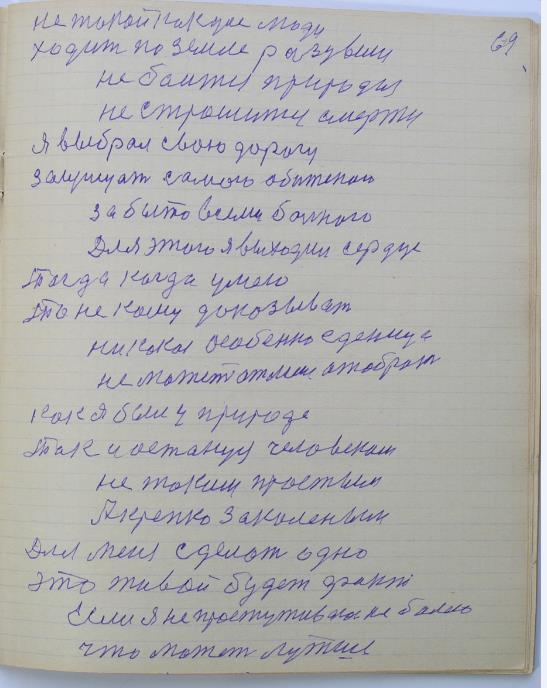 не такой как все люди
69
ходит по земле разувши
не боится природы
не страшится смерти
Я выбрал свою дорогу
защищат самого обиженого
забытовсеми болного
Для этого я выходил сердце
Тогда когда умею
То не кому доковзыват
никака особенно еденица
не может отмени отобрат
как я был у природе
Так и останус человеком
не таким простым
А крепко закаленым
Для меня сделат одно
это живой будет факт
Если я не простуживаюс не болею
что может лутше